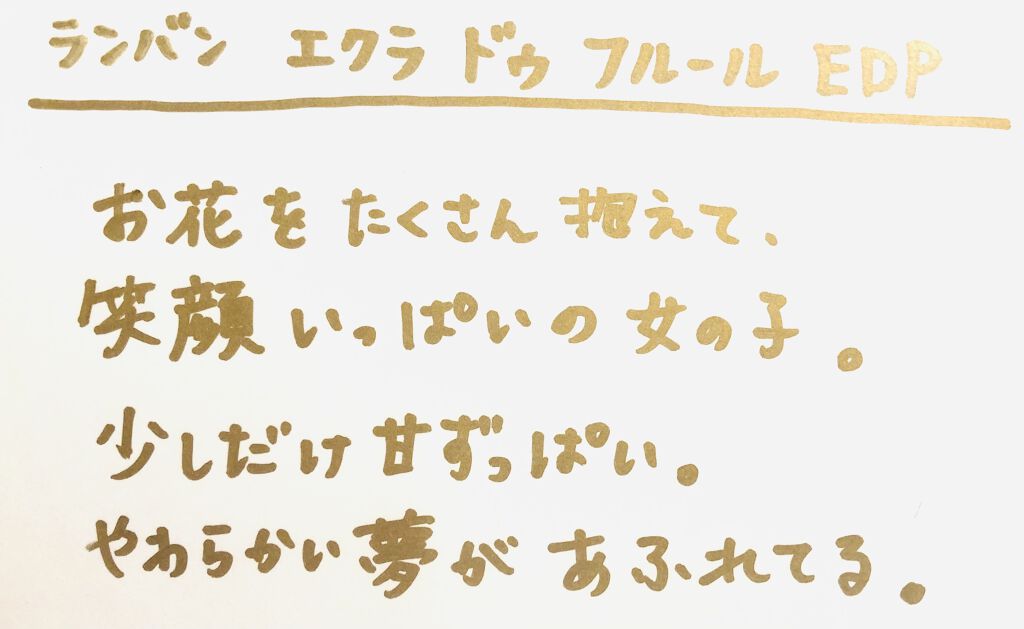 ランバン エクラ ドゥ フルール EDP
お花を たくさん 抱えて、
笑顔いっぱいの女の子。
少しだけ甘ずっぱい。
やわらかい夢が あふれてる。